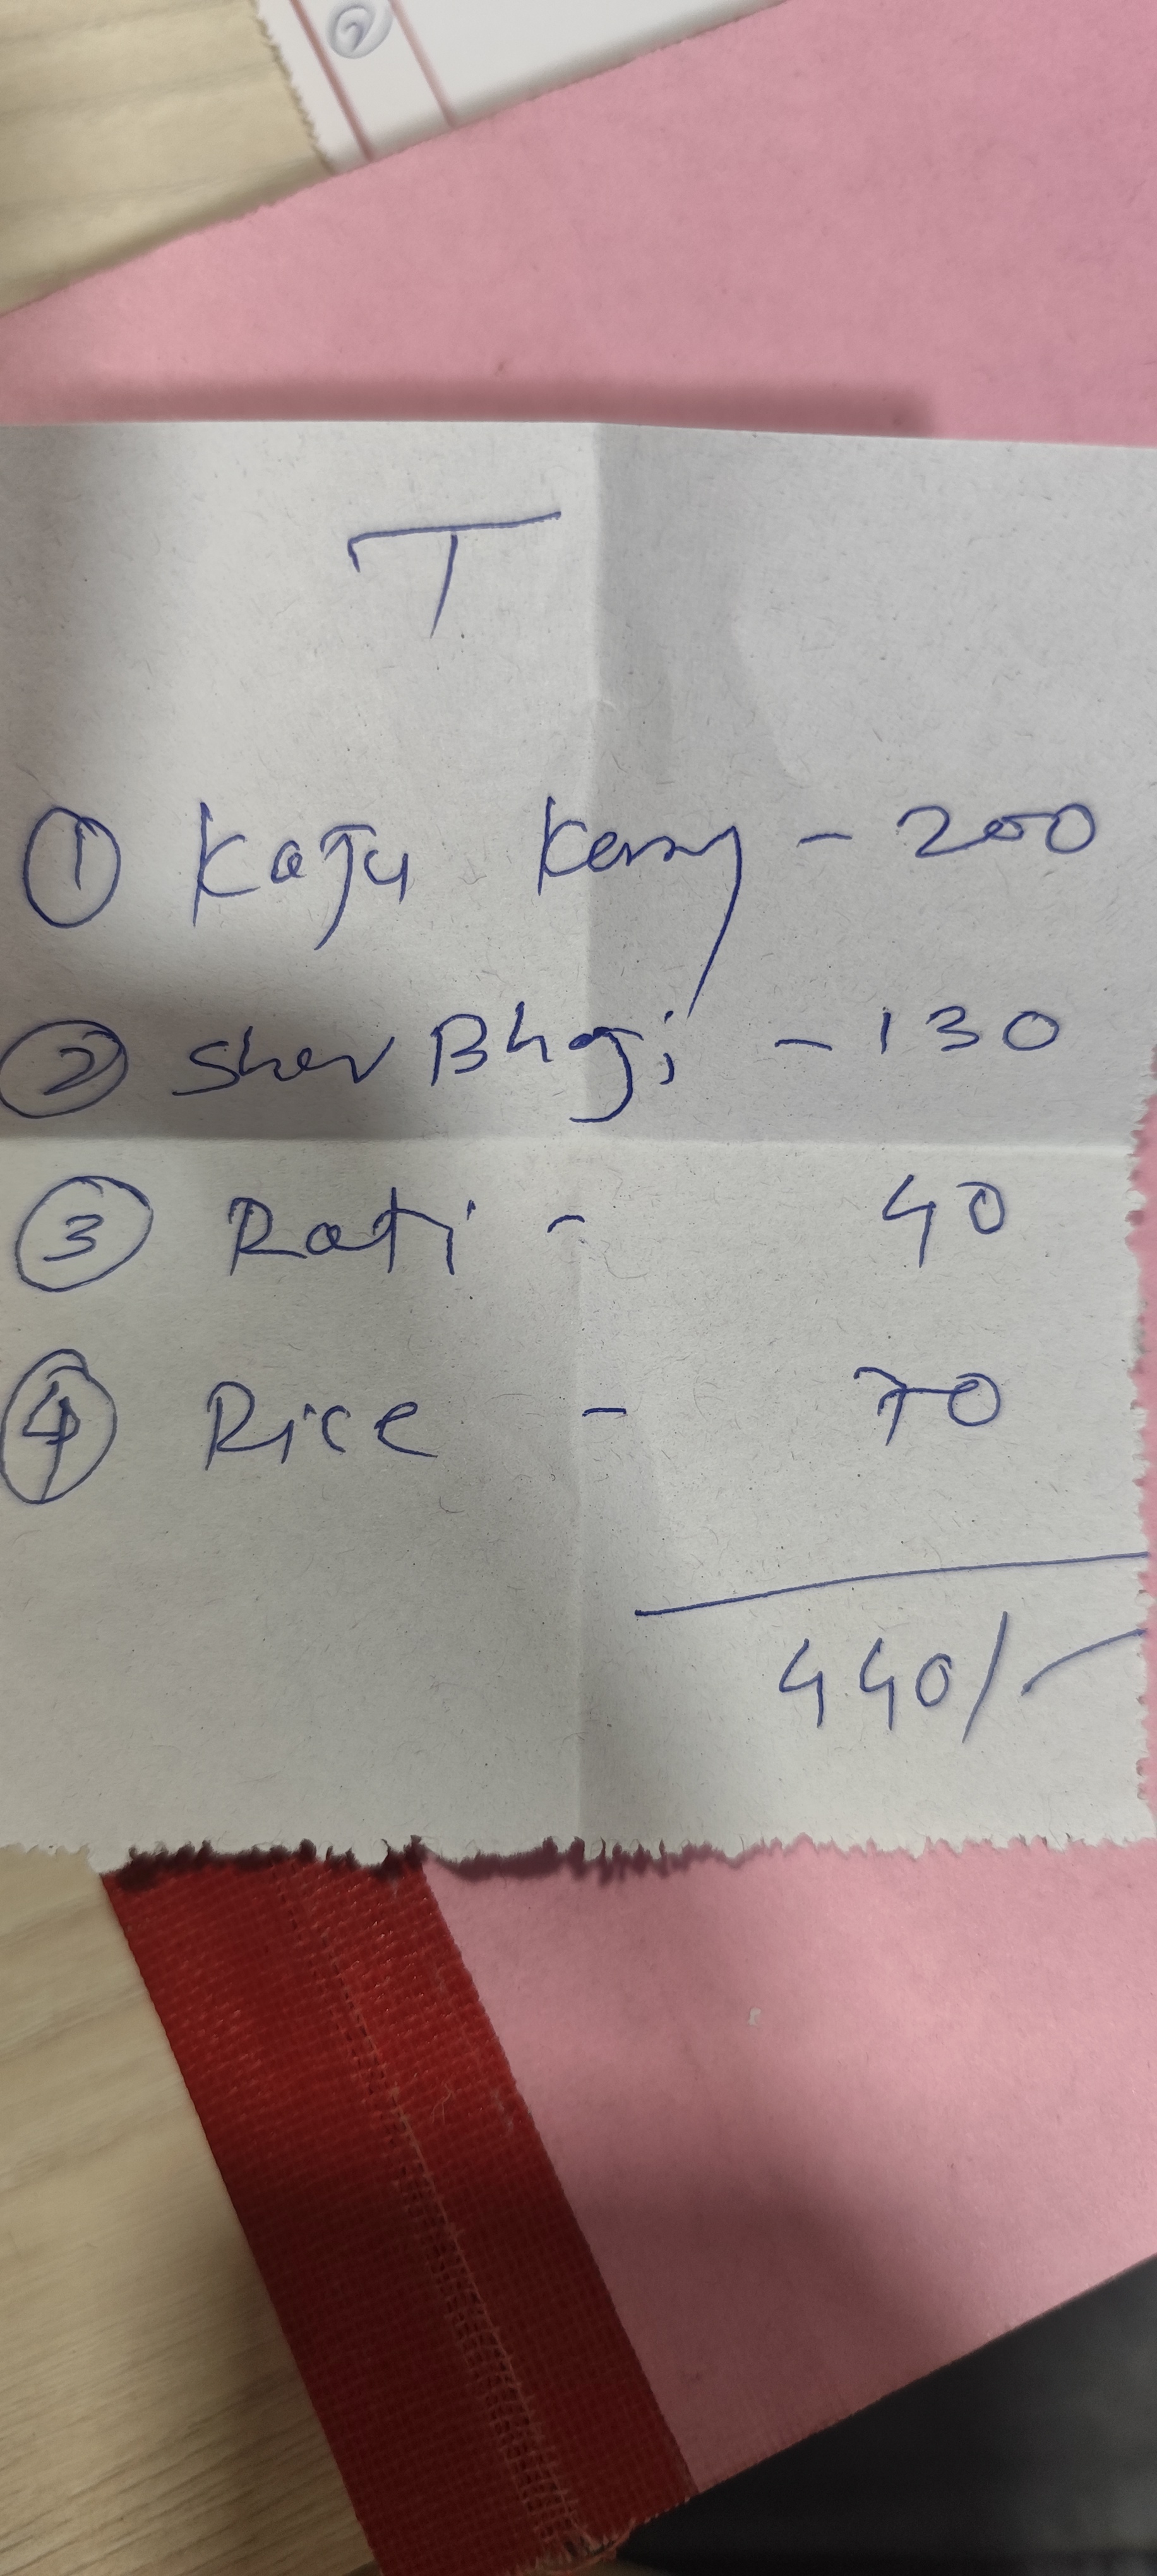 ②
T
① Kaju Kerry - 200
② Shev Bhaji - 130
③ Roti - 40
④ Rice - 70
440/-